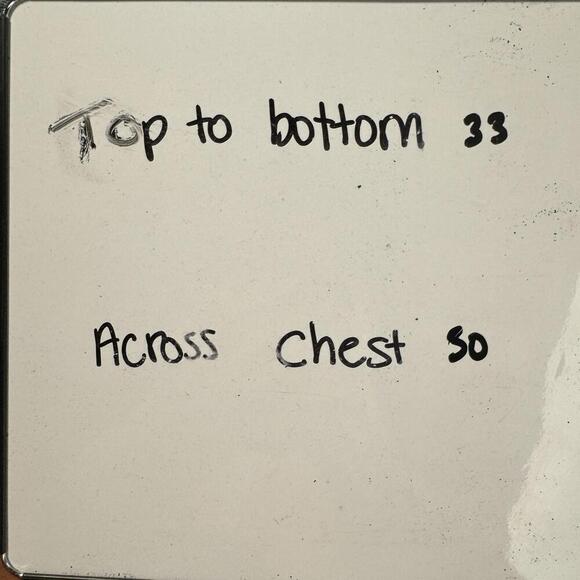 Top to bottom 33
Across Chest 30